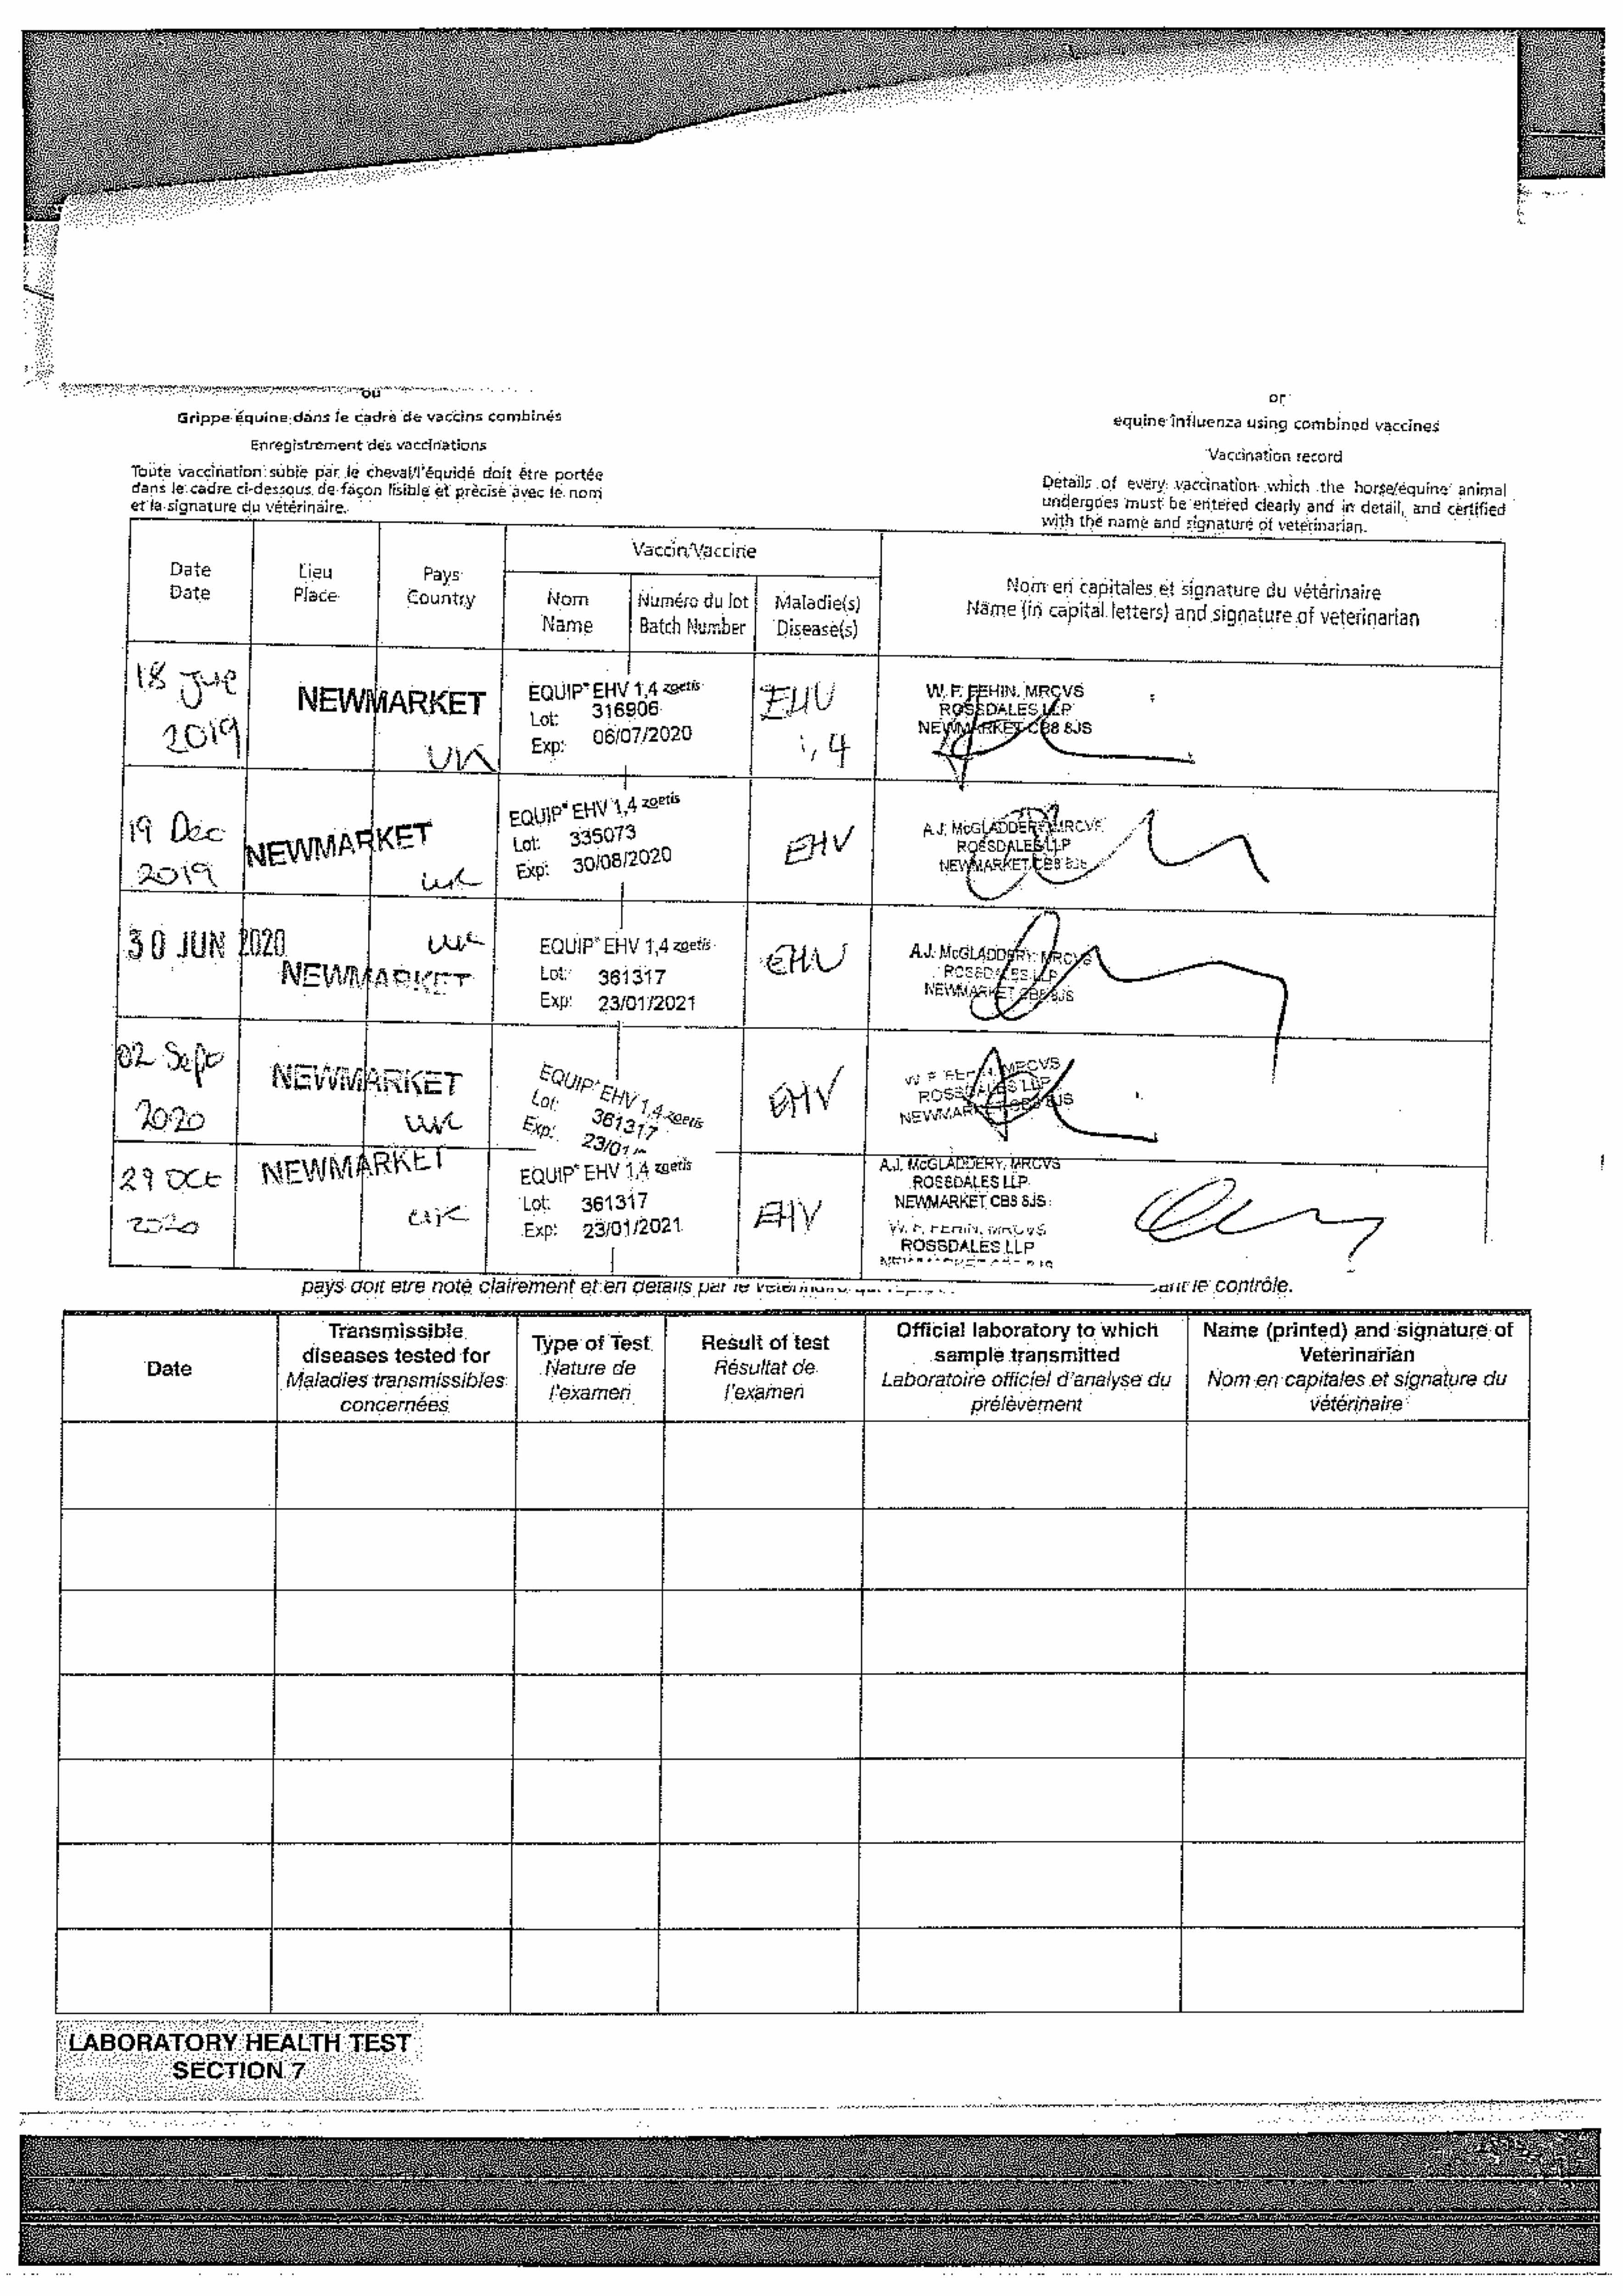 ou
Grippe équine dans le cadre de vaccins combinés
Enregistrement des vaccinations
Toute vaccination subie par le cheval/l'équidé doit être portée
dans le cadre ci-dessous de façon lisible et précise avec le nom
et la signature du vétérinaire.
or
equine influenza using combined vaccines
Vaccination record
Details of every vaccination which the horse/equine animal
undergoes must be entered clearly and in detail, and certified
with the name and signature of veterinarian.
Date
Date
Lieu
Place
Pays
Country
Vaccin/Vaccine
Nom
Name
Numéro du lot
Batch Number
Maladie(s)
Disease(s)
Nom en capitales et signature du vétérinaire
Name (in capital letters) and signature of veterinarian
18
2019
NEWMARKET
UK
EQUIP® EHV 1,4 zoetis
Lot: 316906
Exp: 06/07/2020
EHV
1,4
W. F. FEHIN. MRCVS
ROSSDALES LLP
NEWMARKET CB8 8JS
19 Dec
2019
NEWMARKET
UK
EQUIP® EHV 1,4 zoetis
Lot: 335073
Exp: 30/08/2020
EHV
A.J. McGLADDERY, MRCVS
ROSSDALES LLP
NEWMARKET CB8 8JS
30 JUN 2020
NEWMARKET
UK
EQUIP® EHV 1,4 zoetis
Lot: 361317
Exp: 23/01/2021
EHV
A.J. McGLADDERY, MRCVS
ROSSDALES LLP
NEWMARKET CB8 8JS
02 Sept
2020
NEWMARKET
UK
EQUIP® EHV 1,4 zoetis
Lot: 361317
Exp: 23/01
EHV
W F FEHIN, MRCVS
ROSSDALES LLP
NEWMARKET CB8 8JS
29 Oct
2020
NEWMARKET
UK
EQUIP® EHV 1,4 zoetis
Lot: 361317
Exp: 23/01/2021
EHV
A.J. McGLADDERY, MRCVS
ROSSDALES LLP
NEWMARKET CB8 8JS
W. F. FEHIN, MRCVS
ROSSDALES LLP
pays doit être noté clairement et en détails par le vétérinaire qui
le contrôle.
Date
Transmissible
diseases tested for
Maladies transmissibles
concernées
Type of Test
Nature de
l'examen
Result of test
Résultat de
l'examen
Official laboratory to which
sample transmitted
Laboratoire officiel d'analyse du
prélèvement
Name (printed) and signature of
Veterinarian
Nom en capitales et signature du
vétérinaire
LABORATORY HEALTH TEST
SECTION 7